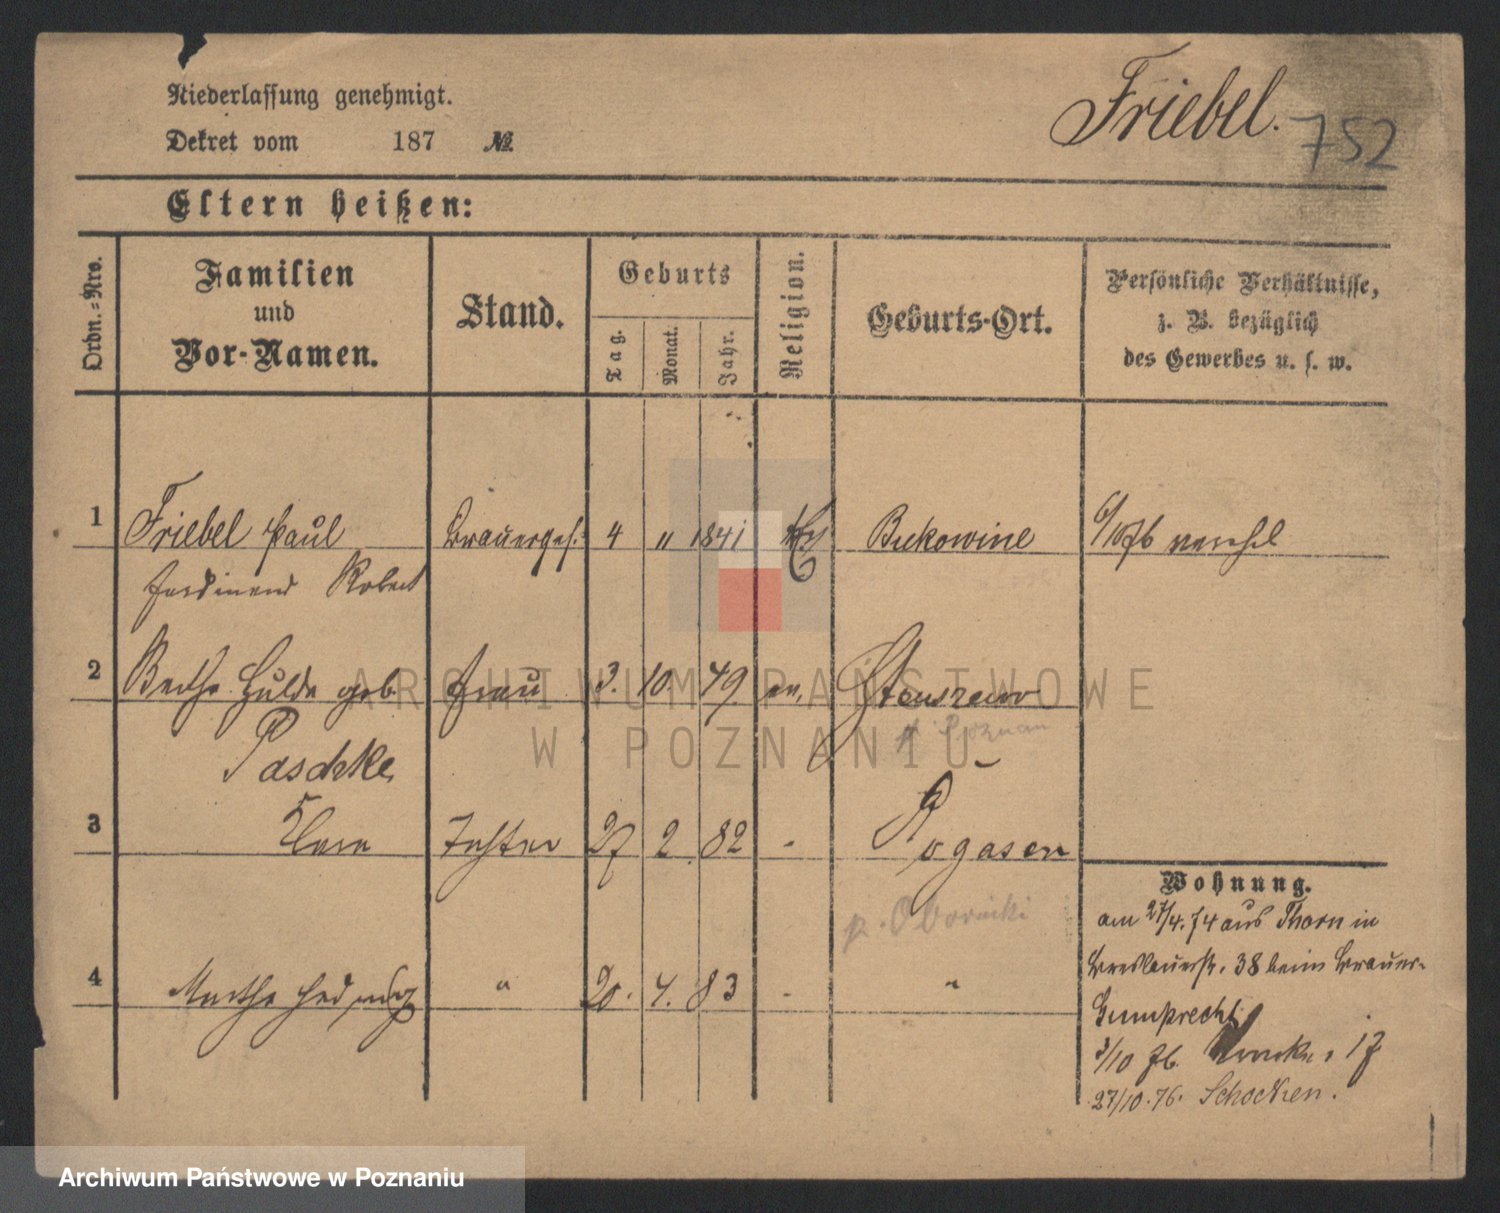 Niederlassung genehmigt.
Dekret vom 187 №
Friebel. 752
Eltern heißen:
Ordn.-Nro.
Familien
und
Vor-Namen.
Stand.
Geburts
Tag.
Monat.
Jahr.
Religion.
Geburts-Ort.
Persönliche Verhältnisse,
z. B. bezüglich
des Gewerbes u. s. w.
1 Friebel Paul Brauerges. 4 " 1841 Bukowine
Ferdinand Robert
2 Bertha Hulda geb Frau 3. 10. 49. ev. Stenszewo
p. Poznań
Paschke
3 Clara Tochter 27 2 82 - Rogasen
p. Obornicki
4 Martha Hedwig " 20. 4. 83 - "
Wohnung.
am 27/4. 74 aus Thorn in
Breslauerstr. 38 beim Brauer
Gumprecht
3/10 76. 17
27/10. 76. Schocken.
ARCHIWUM PAŃSTWOWE
W POZNANIU
Archiwum Państwowe w Poznaniu